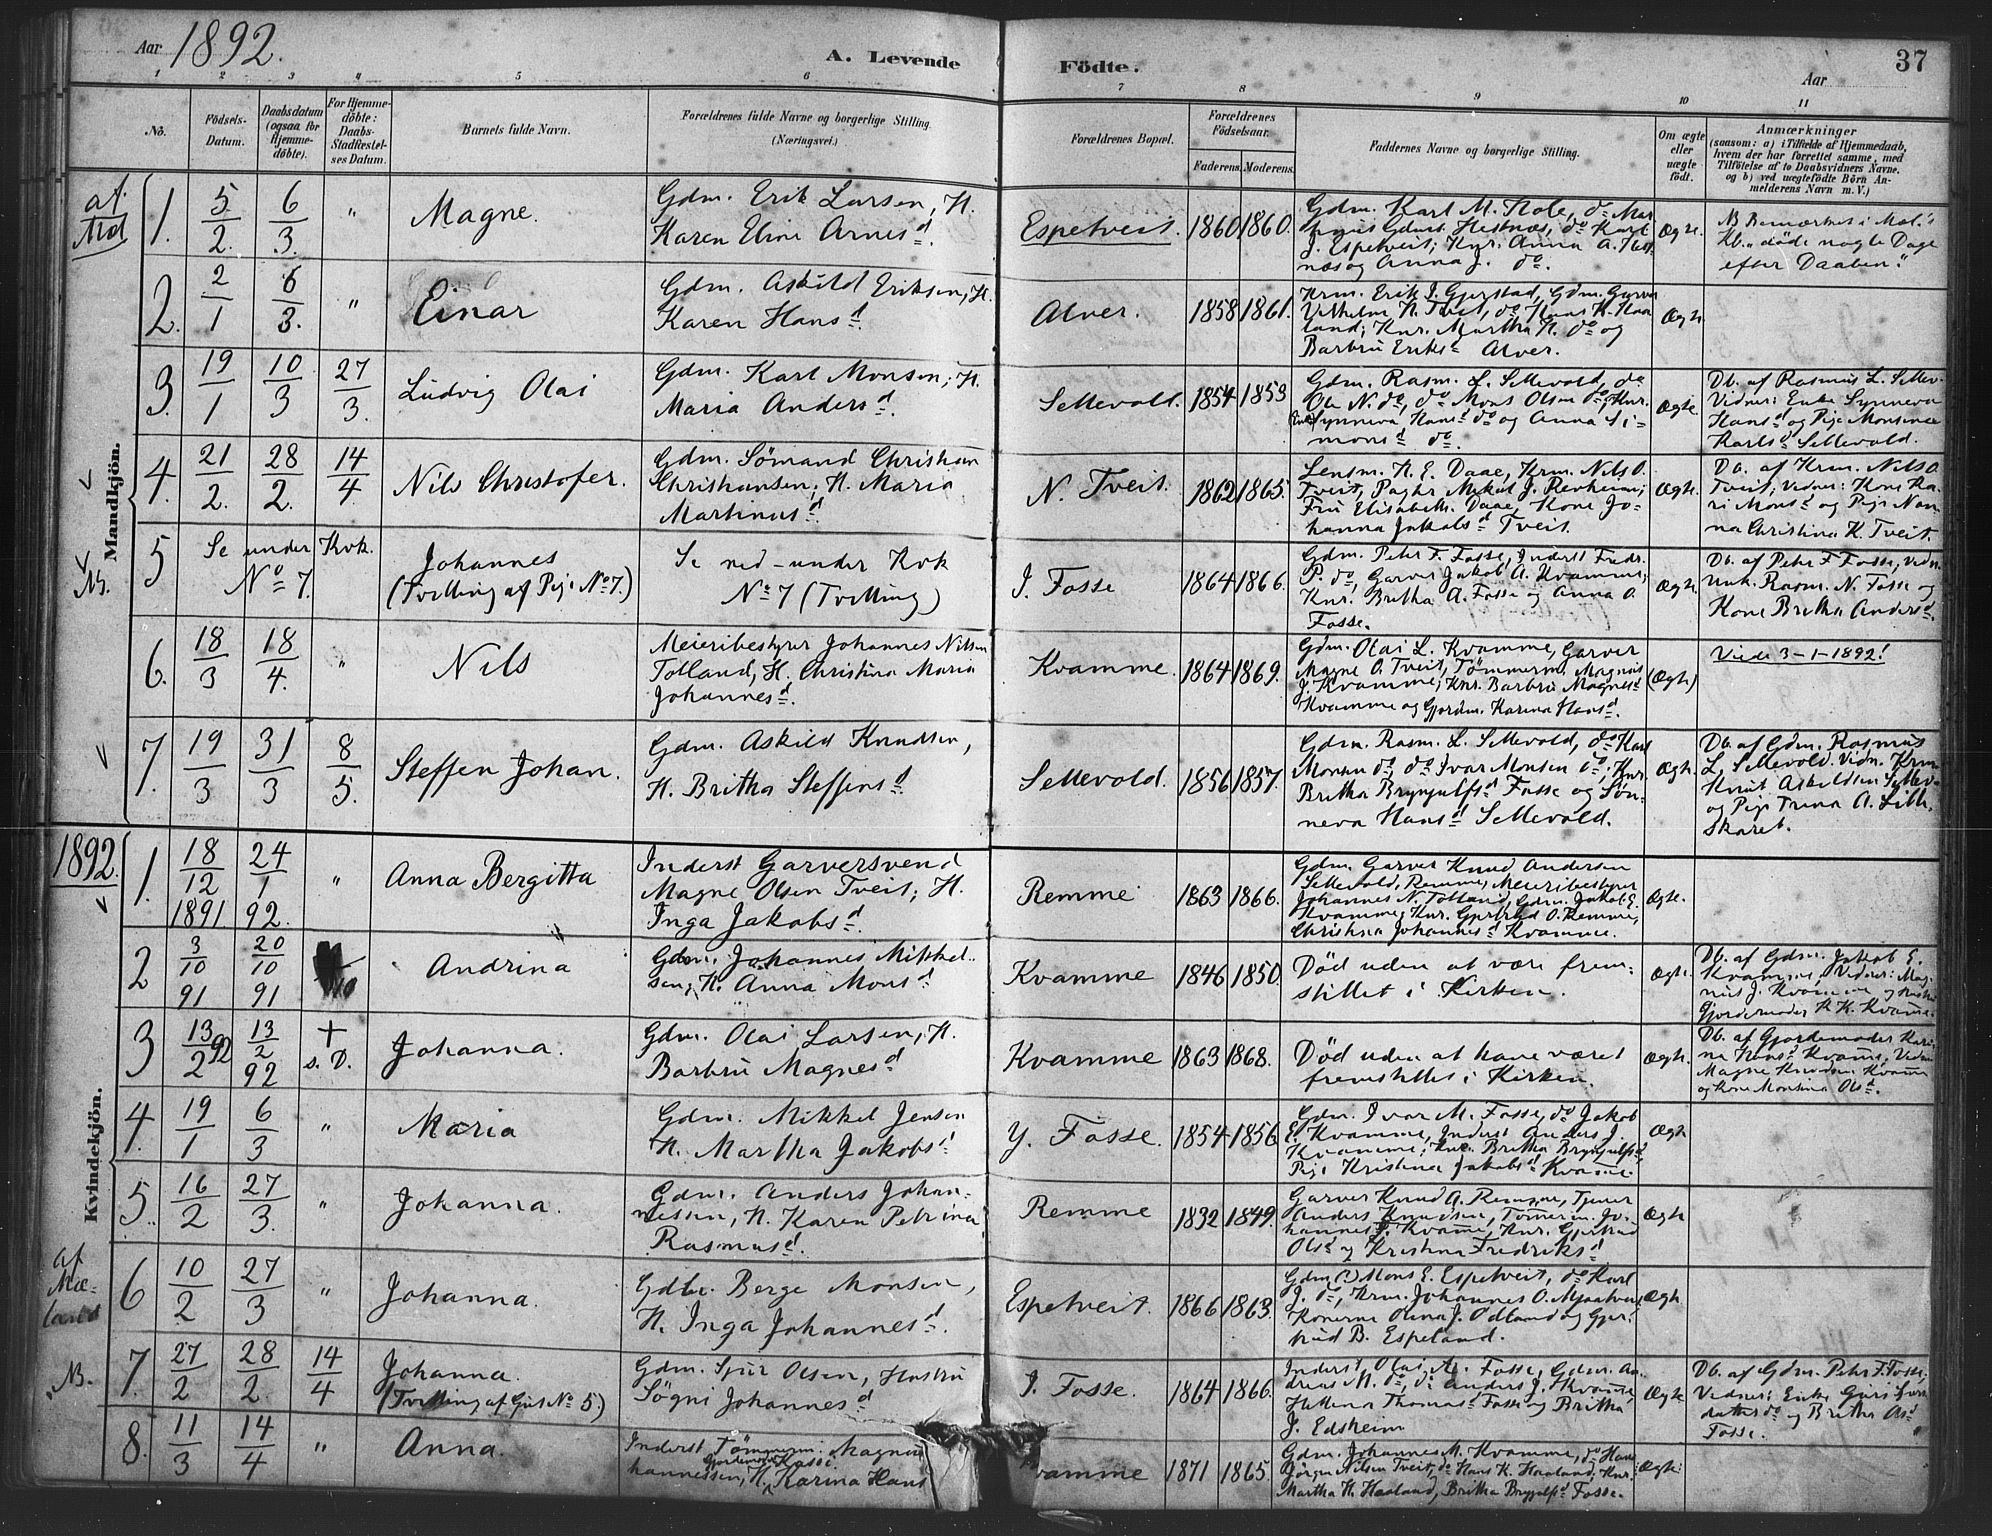 Aar 1892.
A. Levende Födte.
Aar
37
1 2 3 " 5 6 7 8 9 10 11
No.
Födsels-
Datum.
Daabsdatum
(ogsaa for
Hjemme-
döbte).
For Hjemme-
döbte:
Daabs-
Stadfæstel-
ses Datum.
Barnets fulde Navn.
Forældrenes fulde Navne og borgerlige Stilling.
(Næringsvei.)
Forældrenes Bopæl.
Forældrenes
Födselsaar.
Faderens. Moderens.
Faddernes Navne og borgerlige Stilling.
Om ægte
eller
uægte
födt.
Anmærkninger
(saasom: a) i Tilfælde af Hjemmedaab,
hvem der har forrettet samme, med
Tilföielse af to Daabsvidners Navne.
og b) ved uægtefödte Börn An-
melderens Navn m. V.)
Mandkjön.
1. 5/2. 6/3. " Magne.
Gdm. Erik Larsen, H.
Karen Eline Arnesd.
Espetveit. 1860 1860.
Gdm. Karl M. Hole, do
J. Espetveit; Knr. Anna A.
næs og Anna J. do.
Ægte.
NB Bemærket i Mæl.s
Kb. "döde nogle Dage
efter Daaben."
2. 2/1 6/3. " Einar
Gdm. Askild Eriksen, H.
Karen Hansd.
Alver. 1858 1861.
Krm. Erik J. Gjerstad, Gdm. Garver
Vilhelm N. Tveit, do Hans K. Haa-
land; Knr. Martha H. do og
Barbru Eriksd Alver.
Ægte.
3. 19/1 10/3 27/3. Ludvig Olai
Gdm. Karl Monsen, H.
Maria Andersd.
Sellevold. 1854 1859
Gdm. Rasm. L. Sellevold, do
Ole N. do, do Mons Olsen do; Knr.
Synneva Hansd do og Anna Si-
monsd do.
Ægte.
Db. af Rasmus L. Sellev.
Vidner: Enke Synneva
Hansd og Pige Monsine
Karlsd Sellevold.
4. 21/2. 28/2. 14/4 Nils Christofer.
Gdm. Sömand Christian
Christiansen, H. Maria
Martinusd.
N. Tveit. 1862 1865.
Lensm. H. E. Daae, Krm. Nils O.
Tveit, Mikal J. Revheim;
Fru Elisabeth Daae, Kone Jo-
hanna Jakobsd Tveit.
Ægte.
Db. af Krm. Nils O.
Tveit; Vidner: Kone Ka-
ri Monsd og Pige Nan-
na Christina K. Tveit.
NB.
5 Se under Kvk.
No 7.
Johannes
(Tvilling af Pige No 7.)
Se ned-under Kvk
No 7 (Tvilling)
I. Fosse 1864 1866.
Gdm. Peter F. Fosse, Inderst Fredr.
P. do, Garver Jakob A. Kvamme;
Knr. Britha A. Fosse og Anna O.
Fosse.
Ægte.
Db. af Peter F Fosse, Vidn.
Unk. Rasm. N. Fosse og
Kone Britha Andersd.
6. 18/3 18/4. " Nils
Meieribestyrer Johannes Nilsen
Totland, H. Christina Maria
Johannesd.
Kvamme. 1864 1869.
Gdm. Olai L. Kvamme, Garver
Magne O. Tveit, Tömmerm. Magnus
J. Kvamme; Knr. Barbru Magnesd
Kvamme og Gjordm. Karina Hansd.
(Ægte)
Viede 3-1-1892!
7. 19/3 31/3 8/5. Steffen Johan.
Gdm. Askild Knudsen,
H. Britha Steffensd
Sellevold. 1856 1857.
Gdm. Rasm. L. Sellevold, do Karl
Monsen do, do Ivar Monsen do; Knr.
Britha Brynjulfsd Fosse og Syn-
neva Hansd Sellevold.
Ægte.
Db. af Gdm. Rasmus
L. Sellevold. Vidn. Krm.
Knut Askildsen Sellev.
og Pige Trina A. Lille-
skaret.
1892.
Kvindekjön.
1. 18/12 1891 24/1 92. " Anna Bergitta
Inderst Garversvend
Magne Olsen Tveit, H.
Inga Jakobsd.
Remme 1863 1866.
Gdm. Garver Knud Andersen
Sellevold, Remme, Meieribestyrer
Johannes N. Totland, Gdm. Jakob E.
Kvamme; Knr. Gjertrud O. Remme,
Christina Johannesd Kvamme.
Ægte.
2 3/10 91 20/10 91 Andrina
Gdm. Johannes Mikkel-
sen, H. Anna Monsd
Kvamme 1846 1850.
Död uden at være frem-
stillet i Kirken.
Ægte.
Db. af Gdm. Jakob E.
Kvamme, Vidner: Mag-
nus J. Kvamme og
Gjordemoder K. H. Kvamme.
3 13/2 92 13/2 92 + s. D. Johanna.
Gdm. Olai Larsen, H.
Barbru Magnesd
Kvamme 1863 1868.
Död uden at have været
fremstillet i Kirken.
Ægte.
Db. af Gjordemoder Kari-
na Hansd Kvamme, Vidn.
Magne Knudsen Kvamme
og Kone Monsina Olsd.
4. 19/1 6/3 " Maria
Gdm. Mikkel Jensen
H. Martha Jakobsd
Y. Fosse. 1854 1856
Gdm. Ivar M. Fosse, do Jakob
E. Kvamme, Inderst Anders J.
Kvamme; Knr. Britha Brynjulfsd,
Pige Kristina Jakobsd Kvamme.
Ægte
5. 16/2 27/3. " Johanna.
Gdm. Anders Johan-
nessen, H. Karen Petrina
Rasmusd.
Remme 1832 1849.
Garver Knud A. Remme, Tjener
Anders Knudsen, Tömerm. Jo-
hannes J. Kvamme, Knr. Gjertrud
Olsd og Kristina Fredriksd
Ægte
af
Mæ-
land
6 10/2 27/3 " Johanna.
Gdbr. Berge Monsen,
H. Inga Johannesd.
Espetveit. 1866 1863.
Gdm (?) Mons E. Espetveit, do Karl
J. do, Krm. Johannes O. Mjaatveit,
Konerne Olina J. Odland og Gjer-
trud B. Espeland.
Ægte
NB.
7. 27/2 28/2. 14/4 Johanna.
(Tvilling af Gut No 5.)
Gdm. Sjur Olsen, Hustru
Sögni Johannesd
I. Fosse. 1864 1866.
Inderst Olai M. Fosse, Gdm. An-
dreas M. do, do Anders J. Kvamme,
Helena Thomasd Fosse og Britha
J. Edsheim
Ægte
Db. af Gdm. Peter F. Fosse,
Vidner: Enke Guri
datter do og Britha Asd
Fosse.
8. 11/3 14/4 " Anna.
Inderst Tömmerm. Magnus
hannessen, H. Gjordemoder Karina Hans
Kvamme 1871 1865.
Gdm. Johannes M. Kvamme, do Hans
Jörgen Nilsen Tveit, do Hans K. Haaland; Knr.
Martha H. Haaland, Britha Brynjulfsd Fosse.
Ægte.